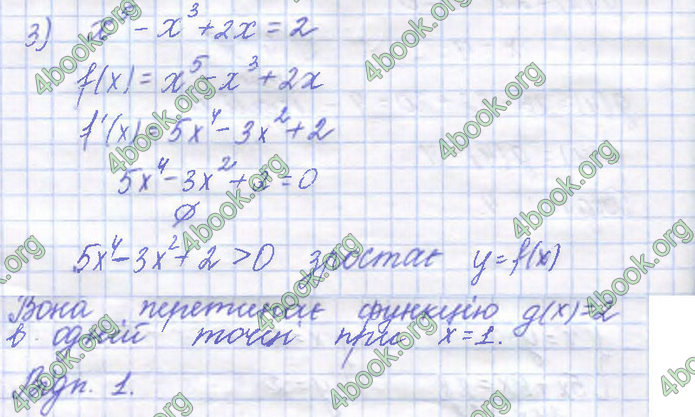 3) x⁵ - x³ + 2x = 2
f(x) = x⁵ - x³ + 2x
f'(x) = 5x⁴ - 3x² + 2
5x⁴ - 3x² + 2 = 0
∅
5x⁴ - 3x² + 2 > 0 зростає y = f(x)
Вона перетинає функцію g(x) = 2
в одній точці при x = 1.
Відп. 1.
4book.org
4book.org
4book.org
4book.org
4book.org
4book.org
4book.org
4book.org
4book.org
4book.org